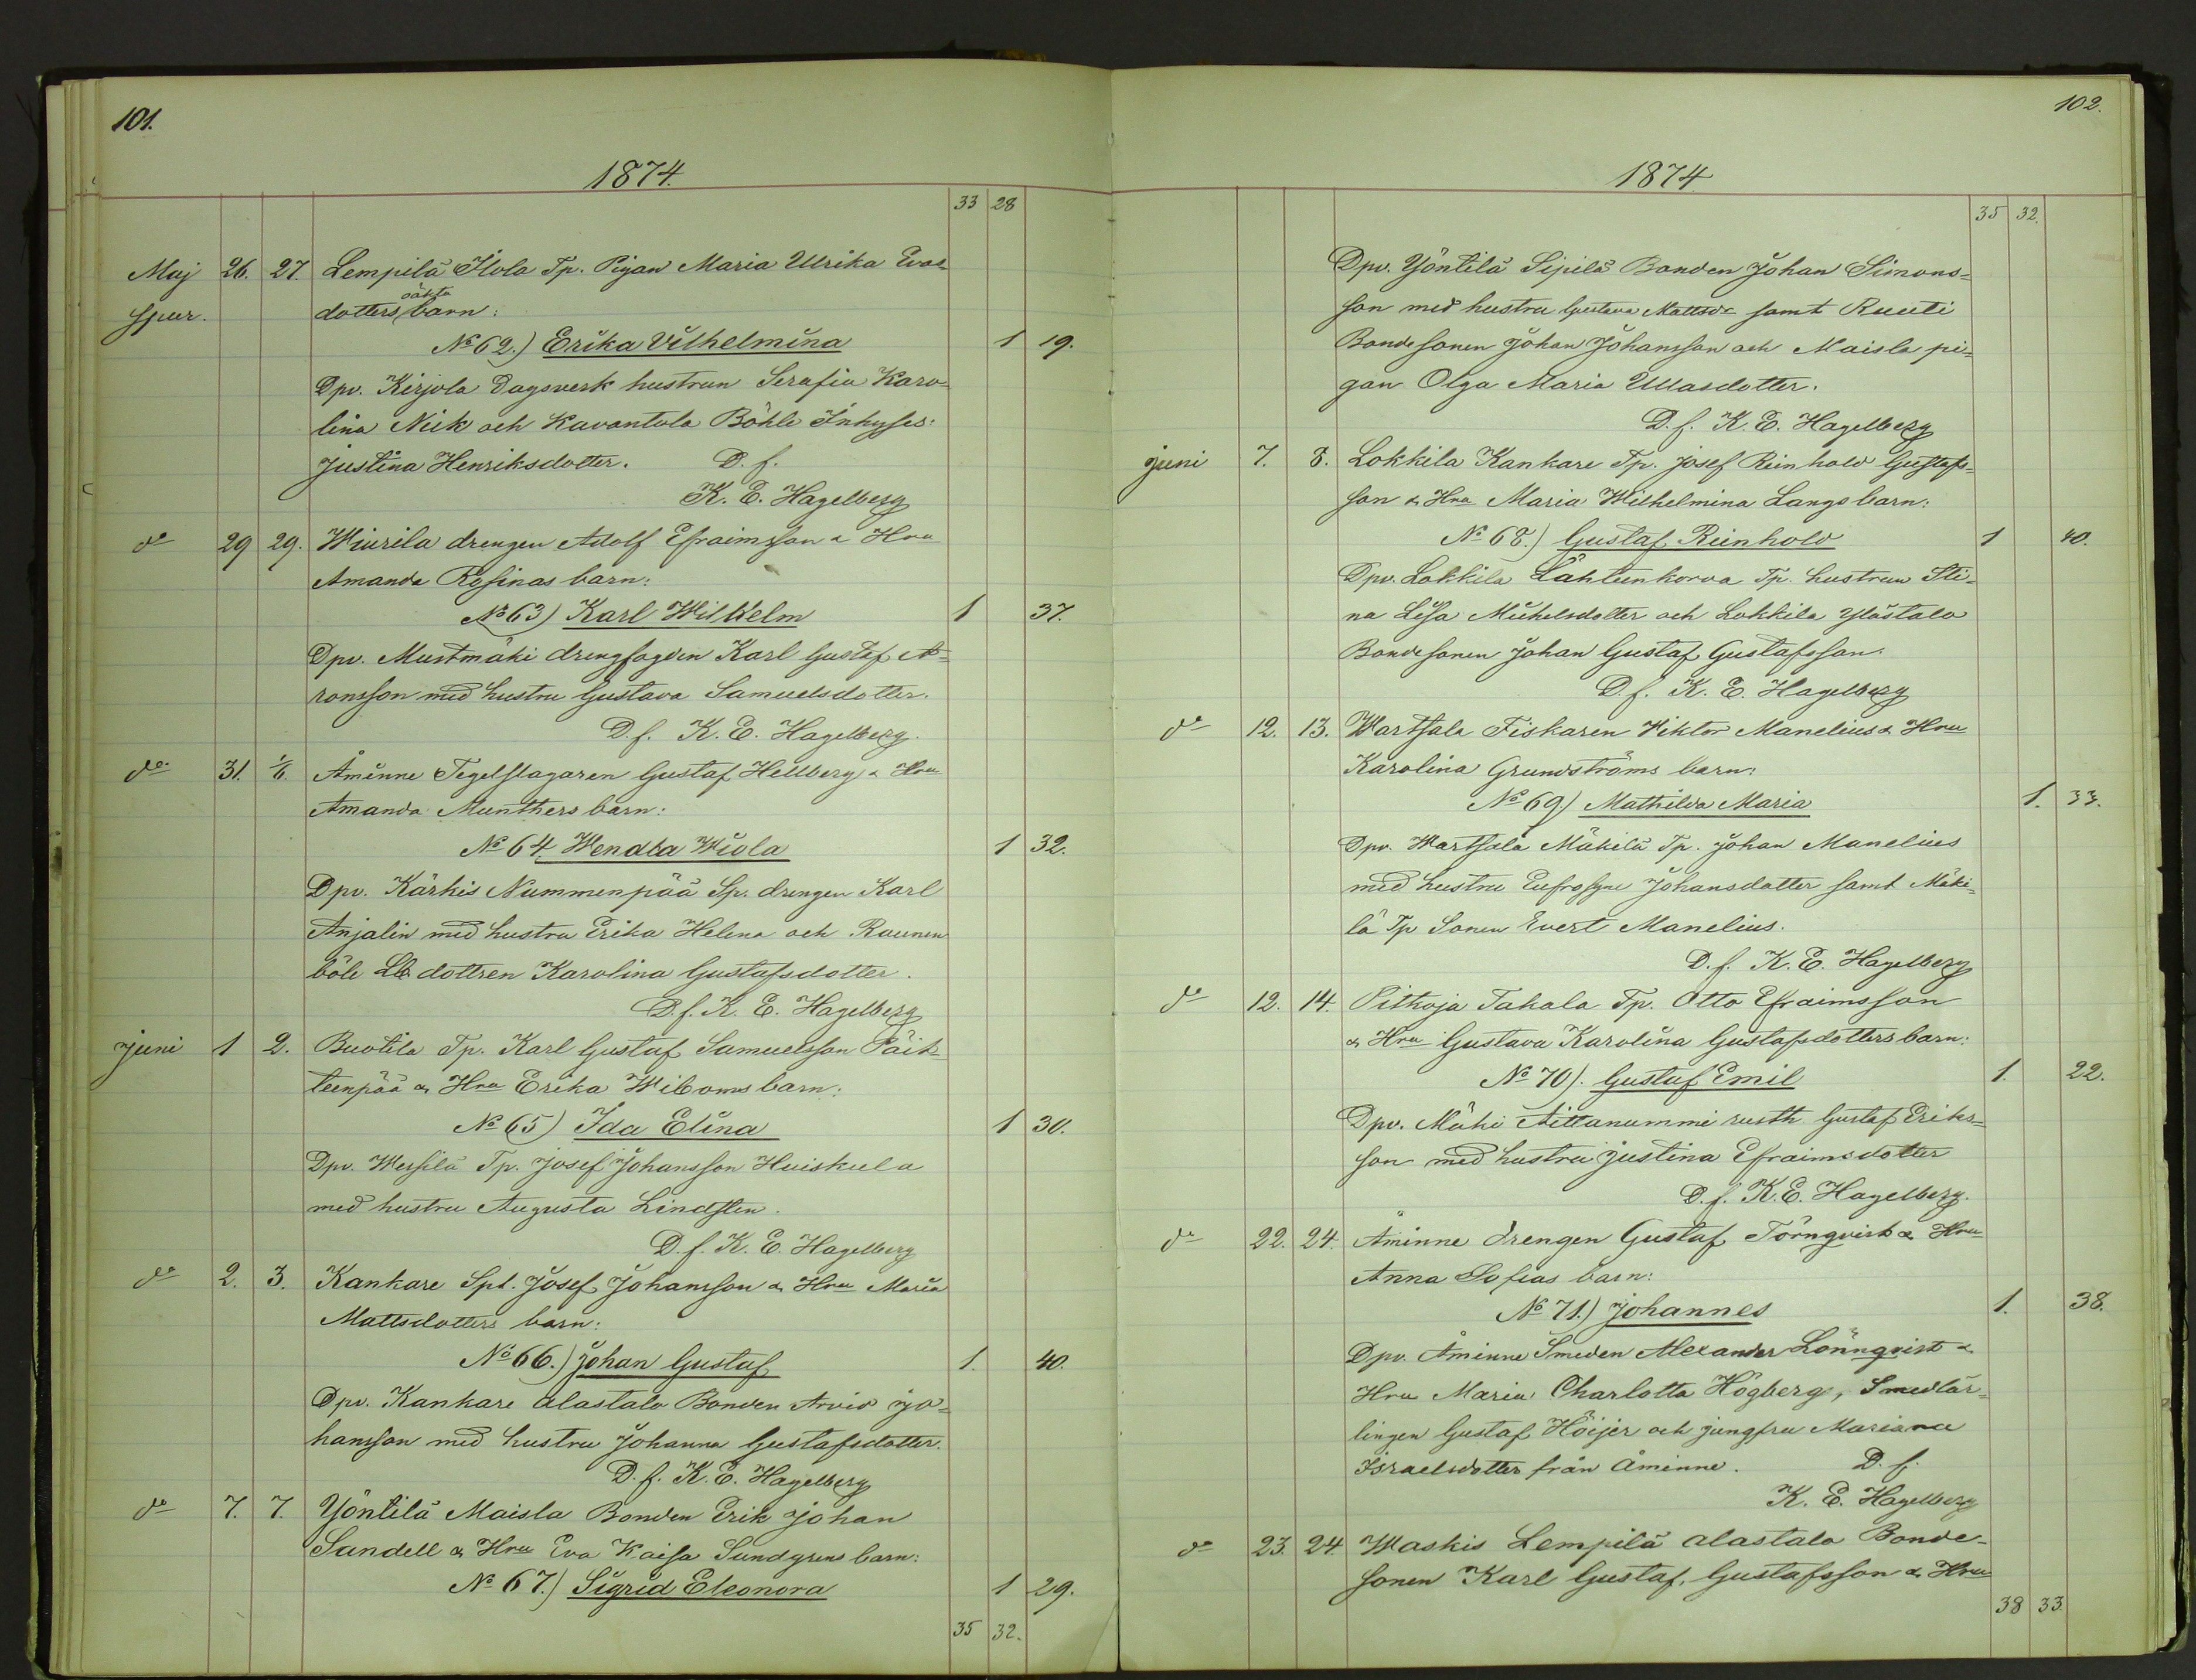 101.
1874.
33 28
Maj 26. 27. Lempilä Ilola Tp. Pigan Maria Ulrika Evas
spur. dotters oäkta barn:
No 62.) Erika Vilhelmina 1 19.
Dpv. Kirjola Dagsverk hustrun Serafia Karo-
lina Nick och Kavantola Böhle Inhyses:
Justina Henriksdotter. D. f.
K. E. Hagelberg
do 29 29. Wiurila drengen Adolf Efraimsson & Hru
Amanda Rosinas barn:
No 63) Karl Wilhelm 1 37.
Dpv. Mustmäki drengfogden Karl Gustaf A-
ronsson med hustru Gustava Samuelsdotter.
D. f. K. E. Hagelberg.
do. 31. 1/6. Åminne Tegelslagaren Gustaf Hellberg & Hru
Amanda Munthers barn:
No 64. Wendla Wiola 1 32.
Dpv. Kärkis Nummenpää Sp. drengen Karl
Anjalin med hustru Erika Helena och Raunen
böle Lb dottren Karolina Gustafsdotter.
D. f. K. E. Hagelberg
juni 1 2. Buotila Tp. Karl Gustaf Samuelsson Päis
teenpää & Hru Erika Wiboms barn:
No 65) Ida Elina 1 30.
Dpv. Wessilä Tp. Josef Johansson Huiskula
med hustru Augusta Lindsten.
D. f. K. E. Hagelberg
do 2. 3. Kankare Spt. Josef Johansson & Hru Maria
Mattsdotters barn:
No 66.) Johan Gustaf 1. 40.
Dpv. Kankare alastalo Bonden Arvid Jo-
hansson med hustru Johanna Gustafsdotter.
D. f. K. E. Hagelberg
do 7. 7. Yöntilä Maisla Bonden Erik Johan
Sandell & Hru Eva Kaisa Sundgrens barn:
No 67.) Sigrid Eleonora 1 29.
35 32.
102.
1874
35 32.
Dpv. Yöntilä Sipilä Bonden Johan Simons-
son med hustru Gustava Mattsdr samt Ruuti
Bondesonen Johan Johansson och Maisla pi-
gan Olga Maria Ullasdotter.
D. f. K. E. Hagelberg
juni 7. 8. Lokkila Kankare Tp. Josef Reinhold Gustafs-
son & Hru Maria Wilhelmina Langs barn:
No 68.) Gustaf Reinhold 1 40.
Dpv. Lokkila Lähteenkorva Tp. hustrun Sti-
na Lisa Michelsdotter och Lokkila Ylöstalo
Bondesonen Johan Gustaf Gustafsson.
D. f. K. E. Hagelberg
do 12. 13. Wartsala Fiskaren Viktor Manelius & Hru
Karolina Grundströms barn:
No 69) Mathilda Maria 1. 33.
Dpv. Wartsala Mäkilä Tp. Johan Manelius
med hustru Eufrosyne Johansdotter samt Mäki-
lä Tp Sonen Evert Manelius.
D. f. K. E. Hagelberg
do 12. 14. Pitkoja Takala Tp. Otto Efraimsson
& Hru Gustava Karolina Gustafsdotters barn:
No 70). Gustaf Emil 1. 22.
Dpv. Mäki Aittanummi rusth Gustaf Eriks-
son med hustru Justina Efraimsdotter
D. f. K. E. Hagelberg.
do 22. 24. Åminne drengen Gustaf Törnqvist & Hru
Anna Sofias barn:
No 71.) Johannes 1. 38.
Dpv. Åminne Smeden Alexander Lönnqvist &
Hru Maria Charlotta Högberg, Smedlär-
lingen Gustaf Höijer och jungfru Mariana
Israelsdotter från Åminne. D. f.
K. E. Hagelberg
do 23. 24. Waskis Lempilä alastalo Bonde-
sonen Karl Gustaf. Gustafsson & Hru
38 33